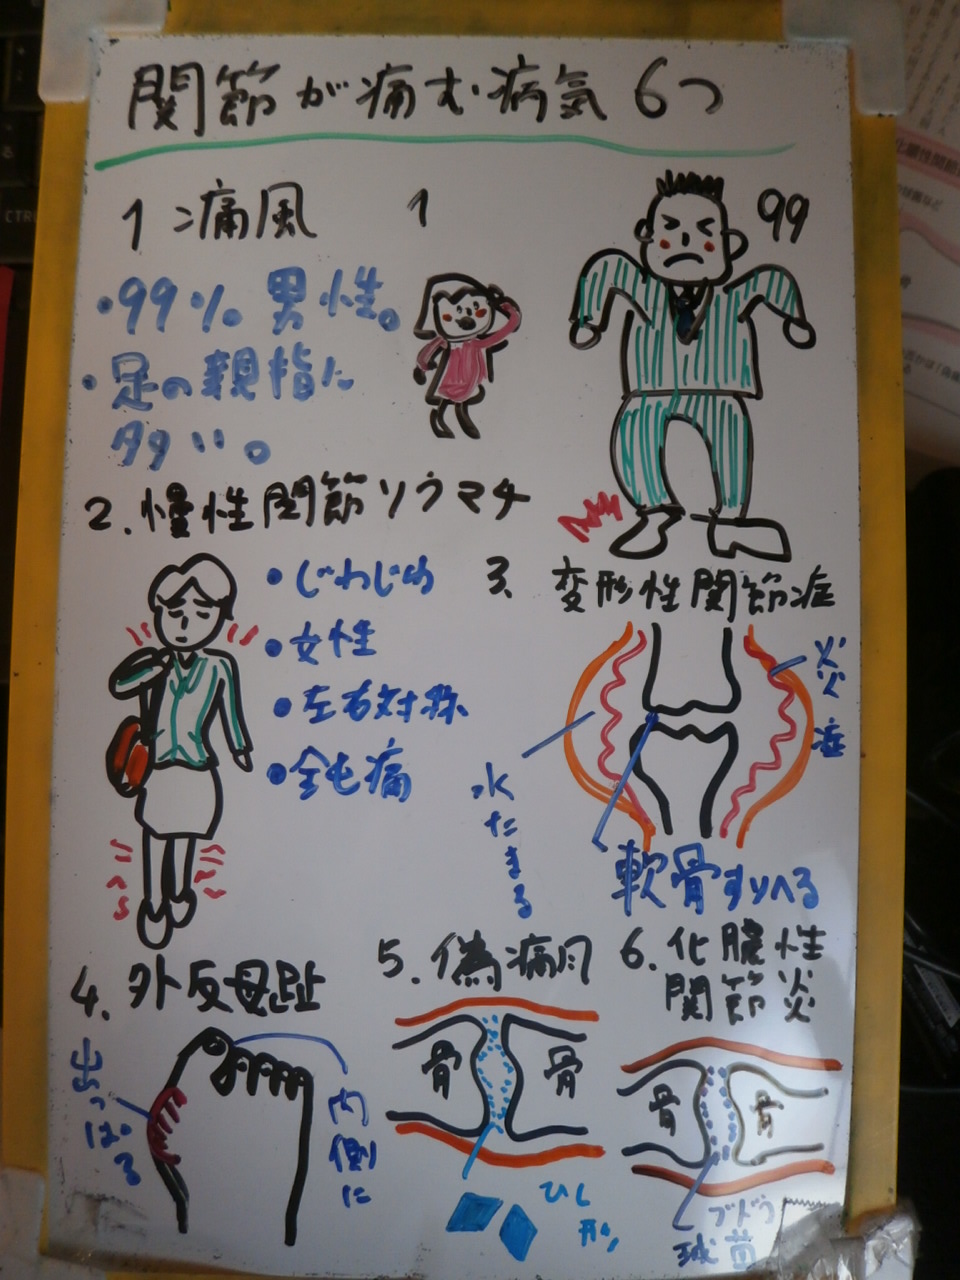 関節が痛む病気6つ
1 痛風
1
99
・99% 男性。
・足の親指に
多い。
2. 慢性関節リウマチ
・じわじわ
・女性
・左右対称
・全も痛
3. 変形性関節症
炎症
水たまる
軟骨すりへる
4. 外反母趾
出っぱる
内側に
5. 偽痛風
骨 骨
ひし
形
6. 化膿性
関節炎
骨 骨
ブドウ
球菌
CTR